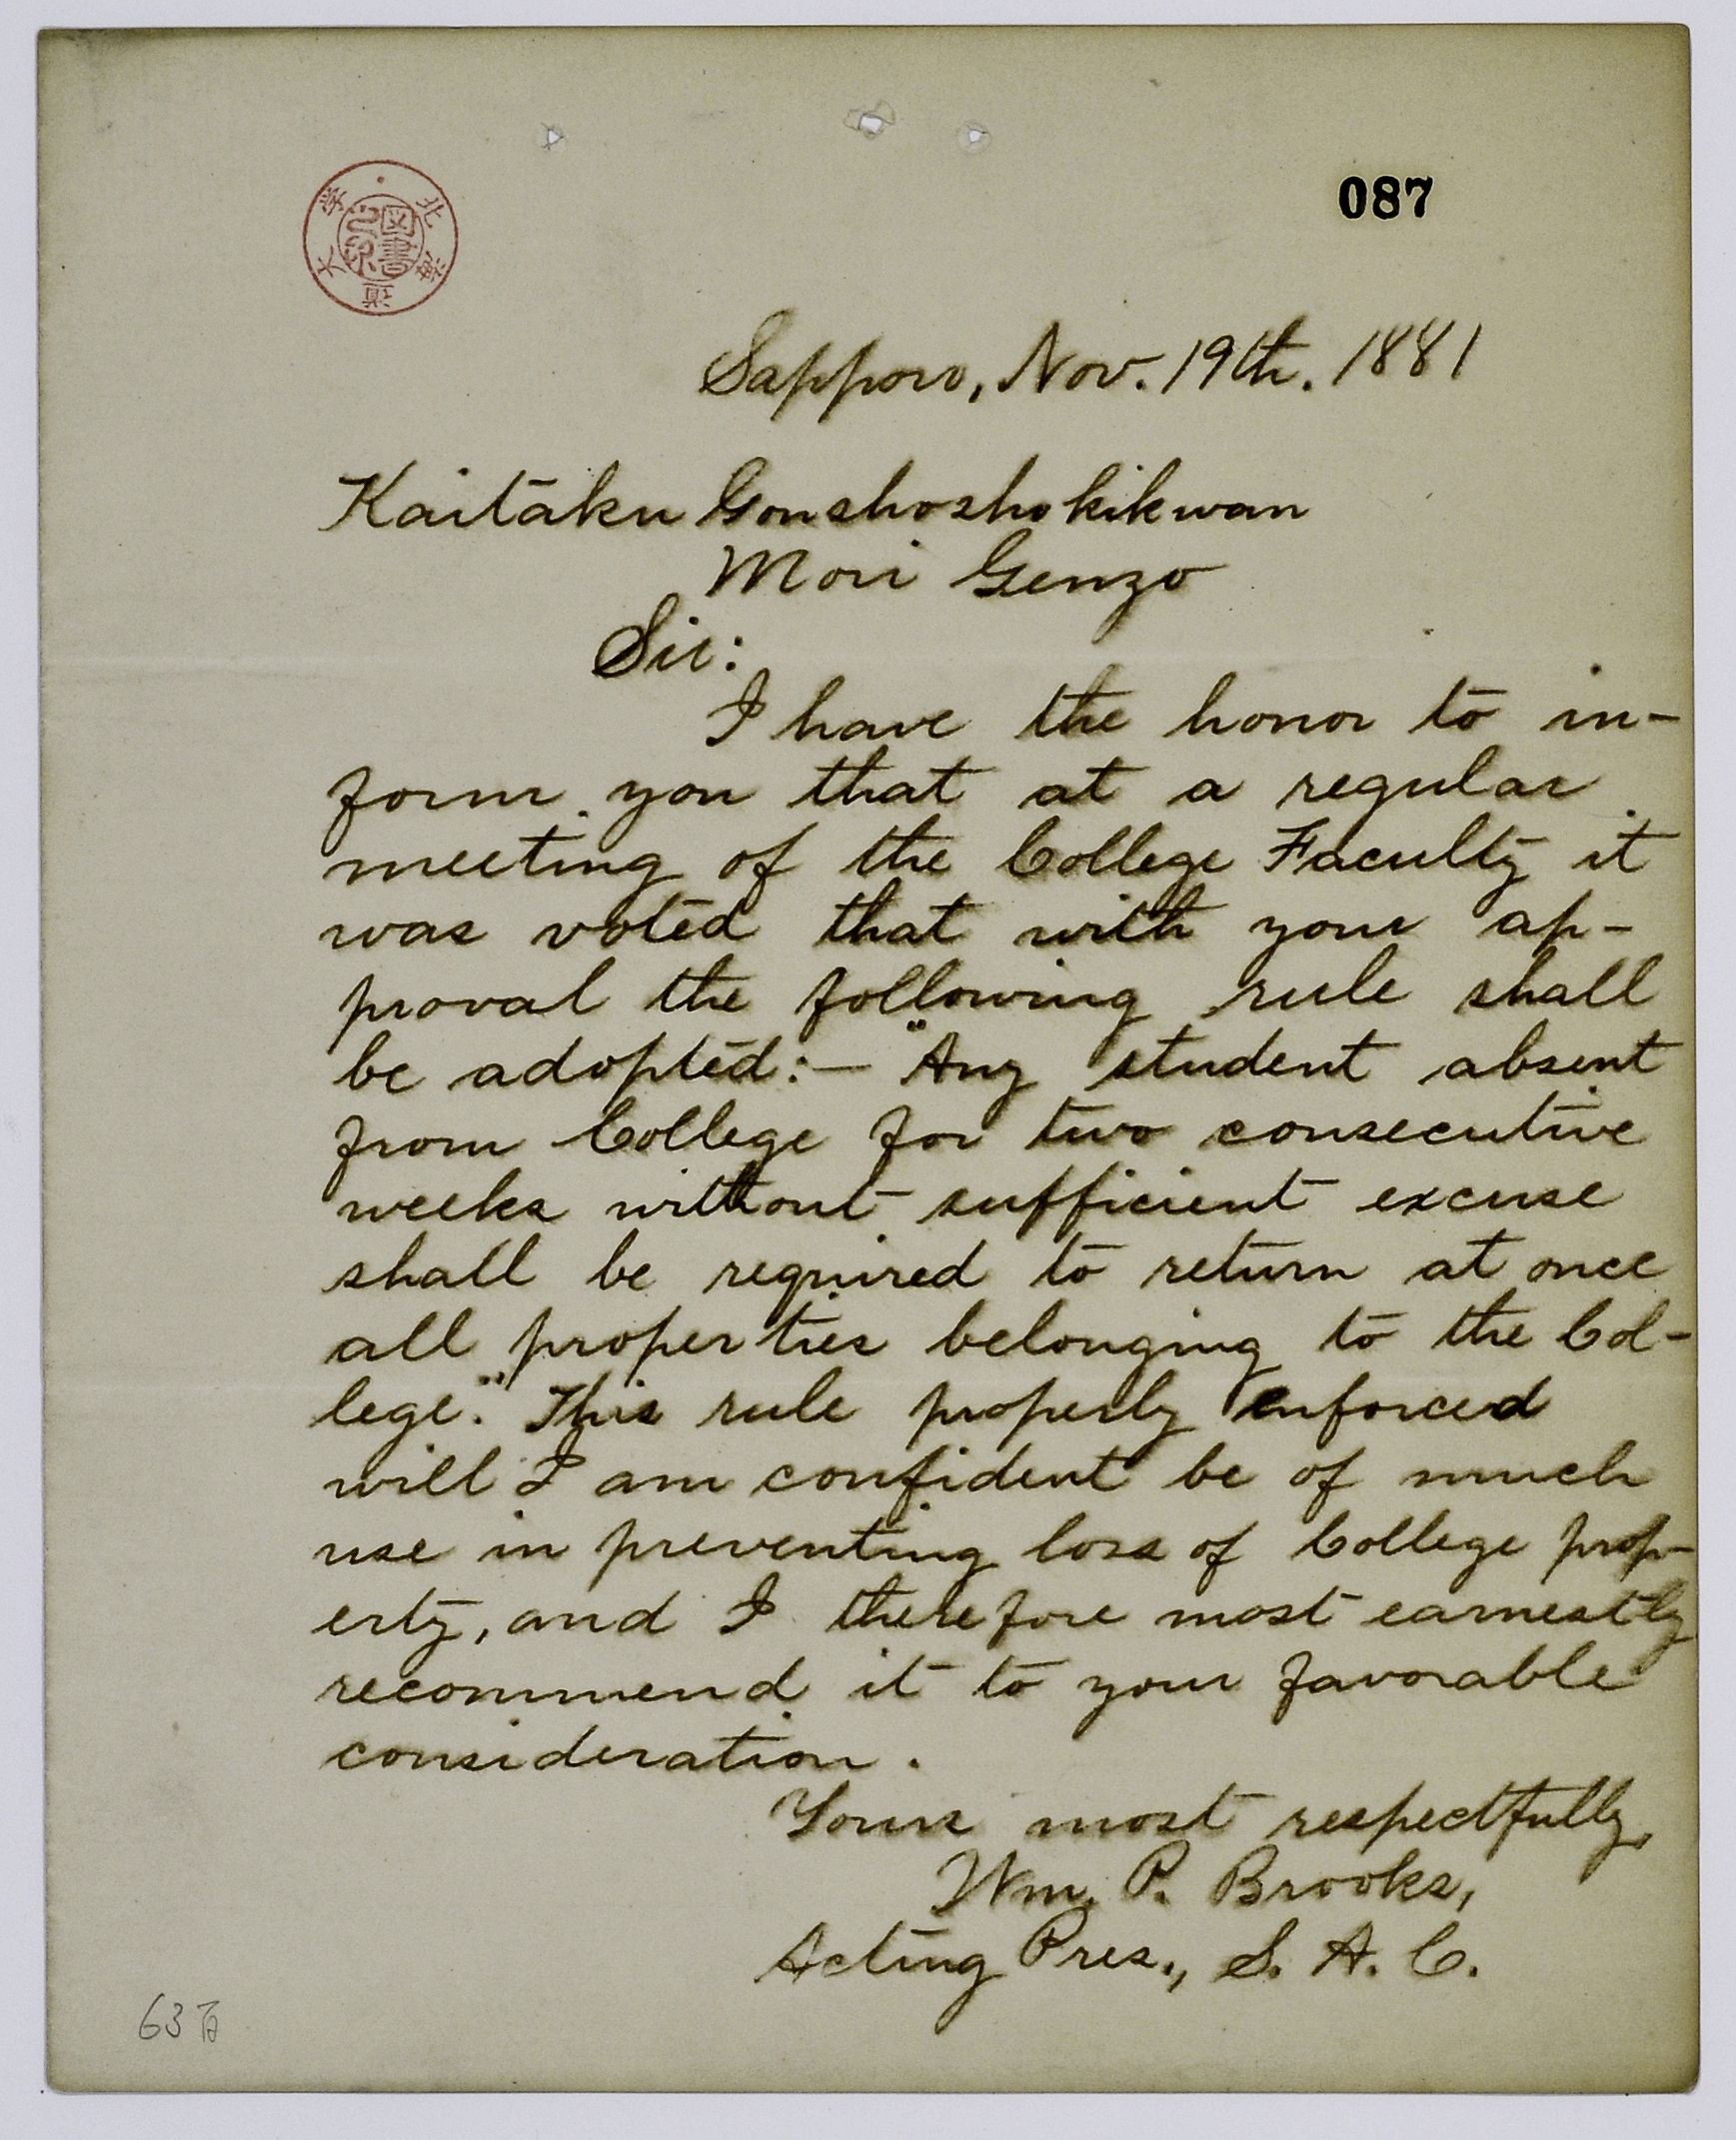 087
北海道大学
図書
Sapporo, Nov. 19th. 1881
Kaitaku Gonshoshokikwan
Mori Genzo
Sir:
I have the honor to in-
form you that at a regular
meeting of the College Faculty it
was voted that with your ap-
proval the following rule shall
be adopted:— "Any student absent
from College for two consecutive
weeks without sufficient excuse
shall be required to return at once
all properties belonging to the Col-
lege." This rule properly enforced
will I am confident be of much
use in preventing loss of College prop-
erty, and I therefore most earnestly
recommend it to your favorable
consideration.
Yours most respectfully,
Wm. P. Brooks,
Acting Pres., S. A. C.
63